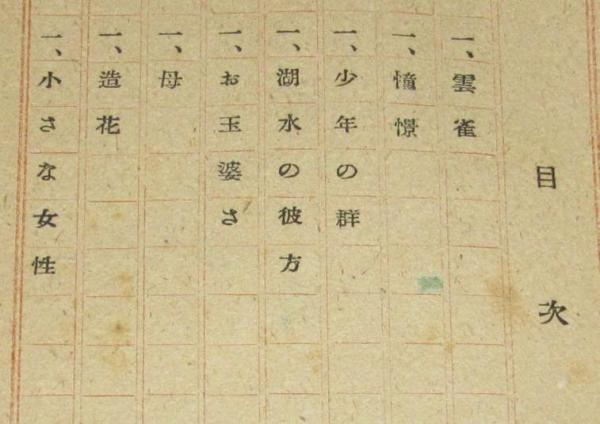 目次
一、雲雀
一、憧憬
一、少年の群
一、湖水の彼方
一、お玉婆さ
一、母
一、造花
一、小さな女性